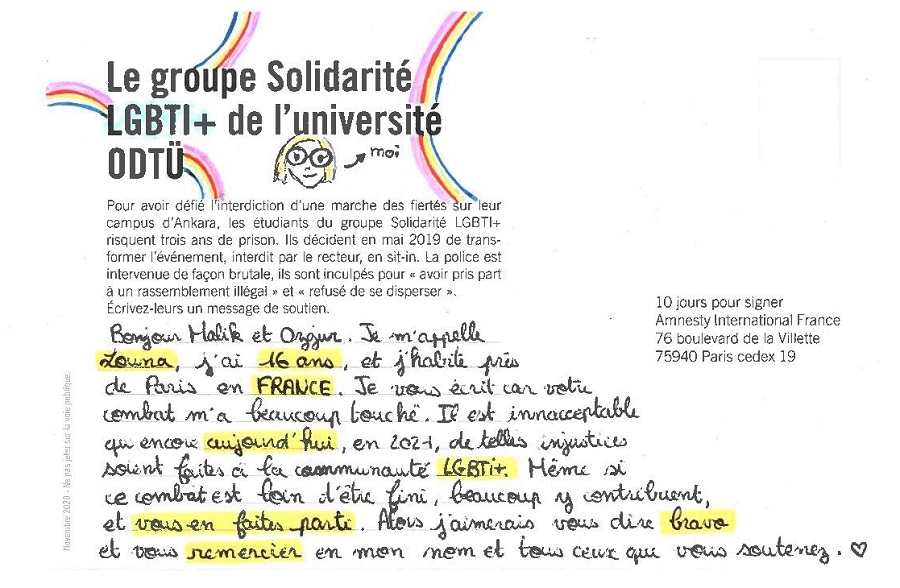 Le groupe Solidarité
LGBTI+ de l'université
ODTÜ
moi
Pour avoir défié l'interdiction d'une marche des fiertés sur leur
campus d'Ankara, les étudiants du groupe Solidarité LGBTI+
risquent trois ans de prison. Ils décident en mai 2019 de trans-
former l'événement, interdit par le recteur, en sit-in. La police est
intervenue de façon brutale, ils sont inculpés pour « avoir pris part
à un rassemblement illégal » et « refusé de se disperser ».
Écrivez-leurs un message de soutien.
10 jours pour signer
Amnesty International France
76 boulevard de la Villette
75940 Paris cedex 19
Bonjour Malik et Ozgur. Je m'appelle
Louna, j'ai 16 ans, et j'habite près
de Paris en FRANCE. Je vous écrit car votre
combat m'a beaucoup touché. Il est innacceptable
qu'encore aujourd'hui, en 2021, de telles injustices
soient faites à la communauté LGBTI+. Même si
ce combat est loin d'être fini, beaucoup y contribuent,
et vous en faites parti. Alors j'aimerais vous dire bravo
et vous remercier en mon nom et tous ceux que vous soutenez. ♡
Novembre 2020 - Ne pas jeter sur la voie publique